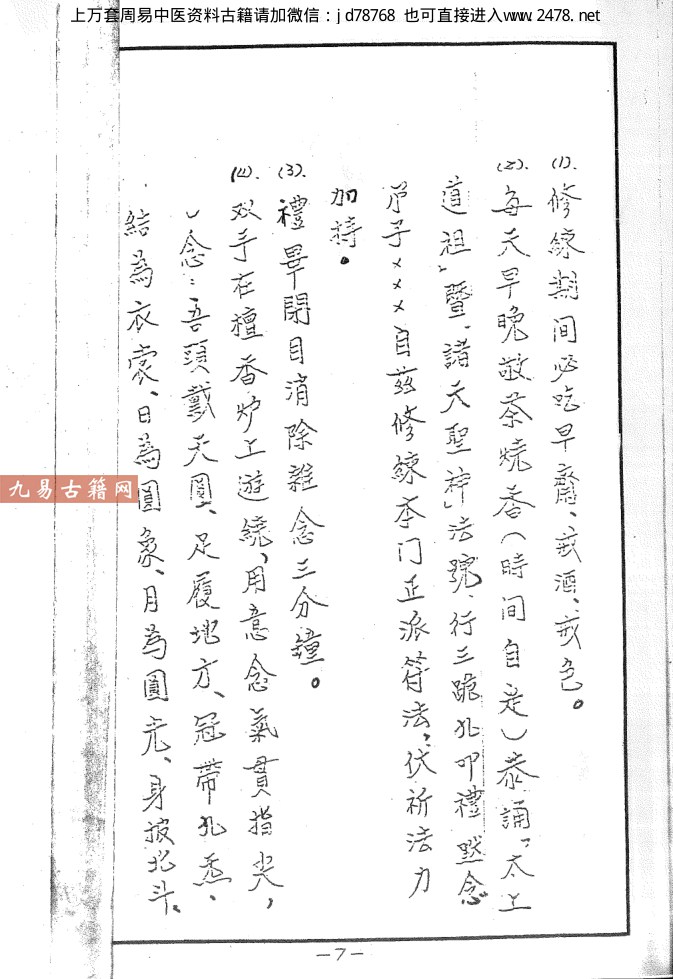 上万套周易中医资料古籍请加微信：jd78768 也可直接进入www.2478.net
(1).修練期间必吃早齋、戒酒、戒色。
(2).每天早晚敬茶烧香(時间自定)恭誦“太上
道祖”暨“諸天聖神”法號、行三跪九叩禮默念“
弟子×××自兹修練李门正派符法，伏祈法力
加持。
(3).禮畢閉目消除雜念三分鐘。
(4).双手在檀香炉上遊繞，用意念氣貫指尖，
念：吾頭戴天圓、足履地方、冠帶九
結為衣裳、日為圓象、月為圓光、身披北斗、
九易古籍网
－7－